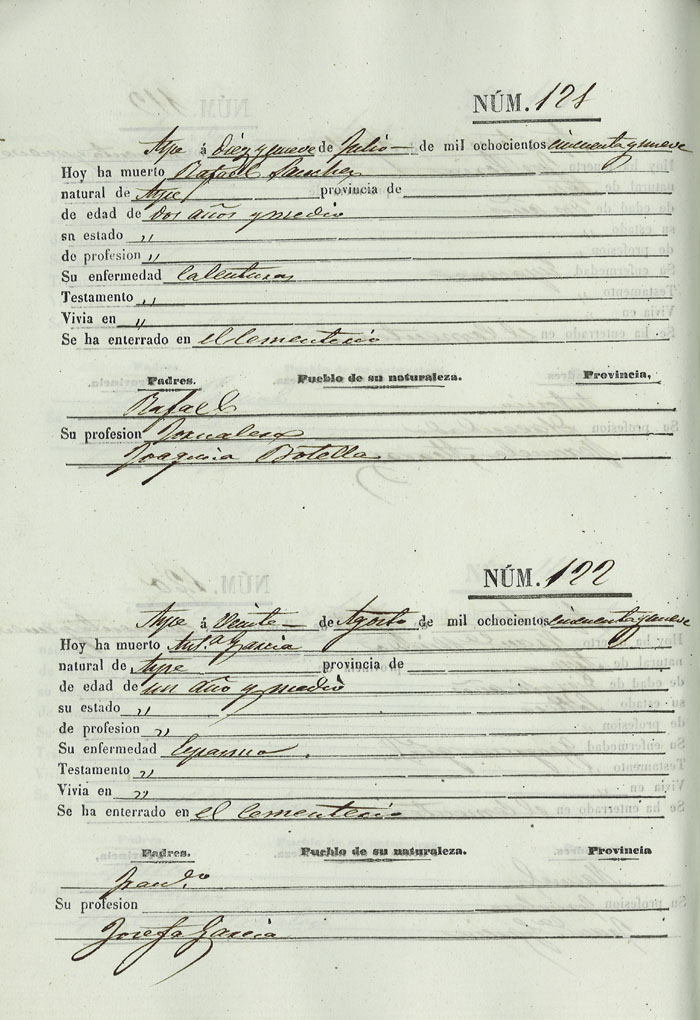 NÚM. 121
Aspe á diez y nueve de Julio de mil ochocientos cincuenta y nueve
Hoy ha muerto Rafael Sanchez
natural de Aspe provincia de
de edad de dos años y medio
sn estado "
de profesion "
Su enfermedad Calenturas
Testamento "
Vivia en "
Se ha enterrado en el Cementerio
Padres. Pueblo de su naturaleza. Provincia,
Rafael
Su profesion Jornalero
Joaquina Botella
NÚM. 122
Aspe á Veinte de Agosto de mil ochocientos cincuenta y nueve
Hoy ha muerto Ant.a Garcia
natural de Aspe provincia de
de edad de un año y medio
su estado "
de profesion "
Su enfermedad Espasmo
Testamento "
Vivia en "
Se ha enterrado en el Cementerio
Padres. Pueblo de su naturaleza. Provincia
Su profesion
Josefa Garcia